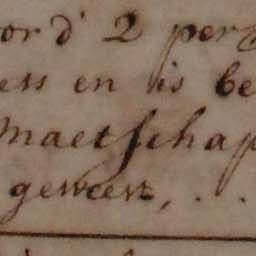 or d' 2 per
ess en is be
maetschap
geweest, . .